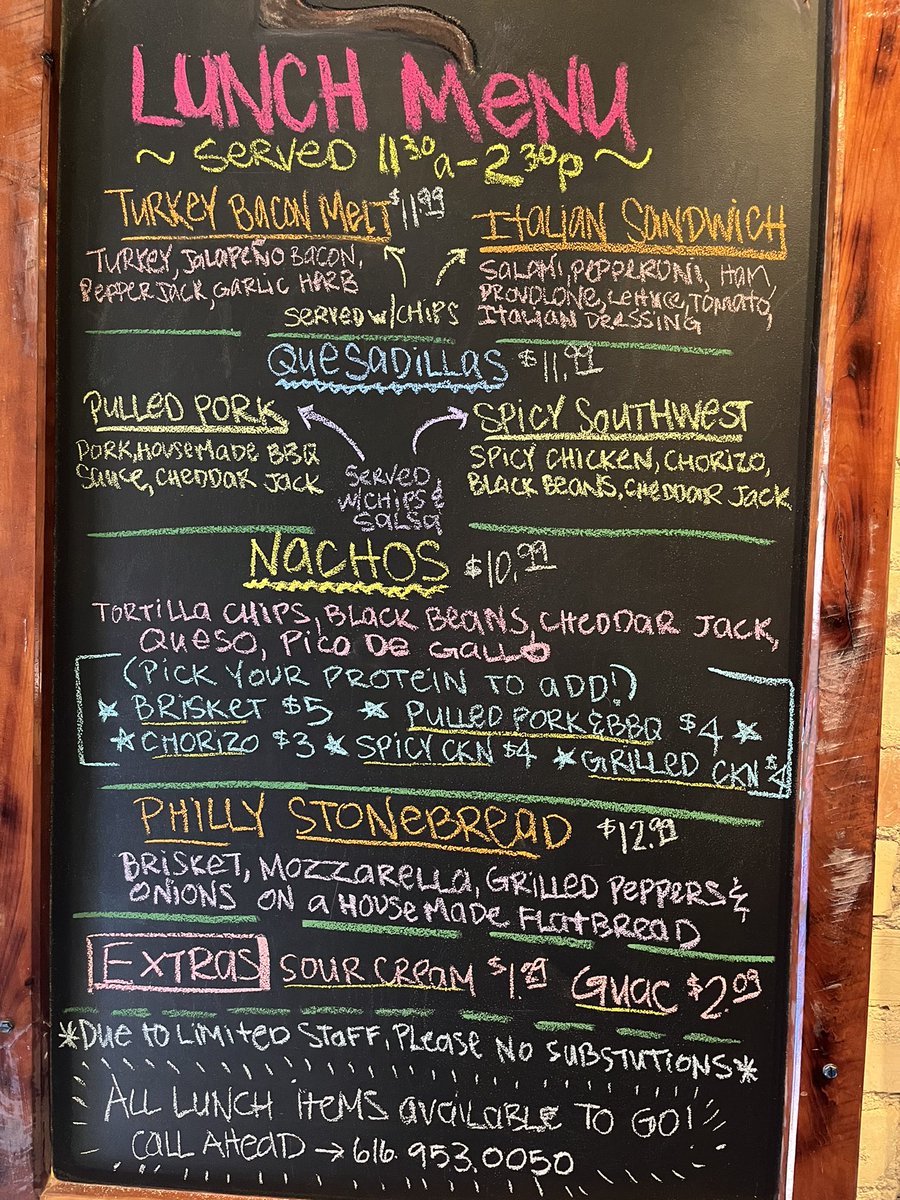 LUNCH MENU
~ SERVED 11³⁰a-2³⁰p ~
TURKEY BACON MELT $11.99
TURKEY, JALAPEÑO BACON,
PEPPERJACK, GARLIC HARB
ITALIAN SANDWICH
SALAMI, PEPPERONI, HAM,
PROVOLONE, LETTUCE, TOMATO,
ITALIAN DERSSING
SERVED W/CHIPS
QUESADILLAS $11.99
PULLED PORK
PORK, HOUSEMADE BBQ
SAUCE, CHEDDAR JACK
SPICY SOUTHWEST
SPICY CHICKEN, CHORIZO,
BLACK BEANS, CHEDDAR JACK
SERVED
W/CHIPS &
SALSA
NACHOS $10.99
TORTILLA CHIPS, BLACK BEANS, CHEDDAR JACK,
QUESO, PICO DE GALLO
(PICK YOUR PROTEIN TO ADD!)
★ BRISKET $5 ★ PULLED PORK & BBQ $4 ★
★ CHORIZO $3 ★ SPICY CKN $4 ★ GRILLED CKN $4
PHILLY STONEBREAD $12.99
BRISKET, MOZZARELLA, GRILLED PEPPERS &
ONIONS ON a HOUSEMADE FLATBREAD
EXTRAS SOUR CREAM $1.99 GUAC $2.99
*DUE TO LIMITED STAFF, PLEASE NO SUBSTUTIONS*
ALL LUNCH ITEMS AVAILABLE TO GO!
CALL AHEAD → 616.953.0050